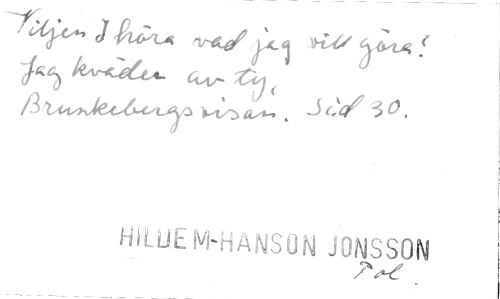 Viljen I höra vad jag vill göra?
Jag kväder av ty,
Brunkebergsvisan. Sid 30.
HILDE M-HANSON JONSSON
Pol.